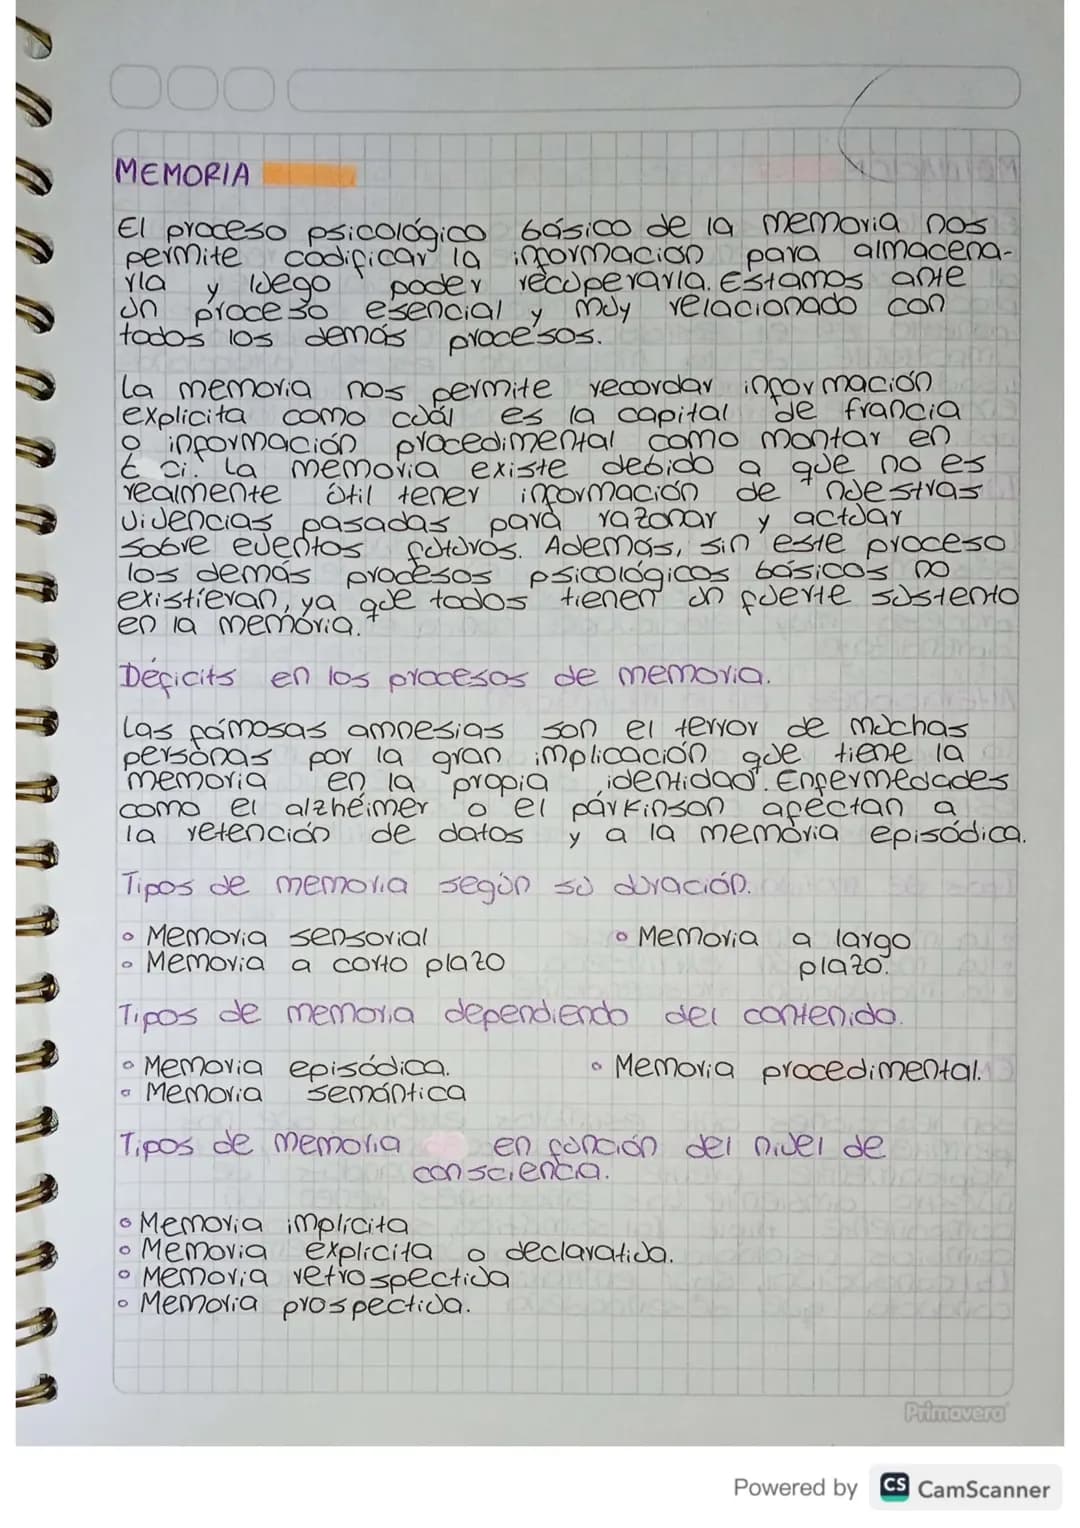 MEMORIA
El proceso psicológico básico de la memoria nos
permite codificar la información para almacena-
rla y luego poder recuperarla. Estamos ante
un proceso esencial y muy relacionado con
todos los demás procesos.
La memoria nos permite recordar información
explicita como cuál es la capital de francia
o información procedimental como montar en
ci. La memoria existe debido a que no es
realmente útil tener información de nuestras
vivencias pasadas para razonar y actuar
sobre eventos futuros. Además, sin este proceso
los demás procesos psicológicos básicos no
existieran, ya que todos tienen un fuerte sustento
en la memória.
Déficits en los procesos de memoria.
Las fámosas amnesias son el terror de muchas
persónas por la gran implicación que tiene la
memoria en la propia identidad. Enfermedades
como el alzhéimer o el párkinson aféctan a
la retención de datos y a la memória episódica.
Tipos de memoria según su duración.
• Memoria sensorial
• Memoria a corto plazo
• Memoria a largo
plazo.
Tipos de memoria dependiendo del contenido.
• Memoria episódica.
• Memoria semántica
• Memoria procedimental.
Tipos de memoria en función del nivel de
consciencia.
• Memoria implicita
• Memoria explicita o declarativa.
• Memoria retrospectiva
• Memoria prospectiva.
Primavera
Powered by CS CamScanner